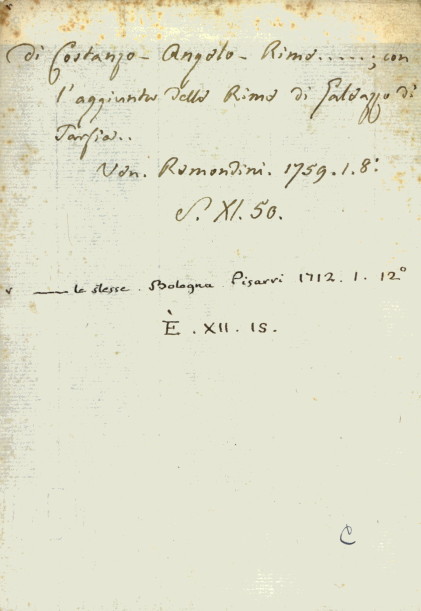 di Costanzo - Angelo - Rime.....; con
l'aggiunta delle Rime di Galeazzo di
Tarsia..
Ven. Remondini. 1759. 1. 8.°
S. XI. 50.
— le stesse. Bologna Pisarri 1712. 1. 12°
È. XII. 15.
C